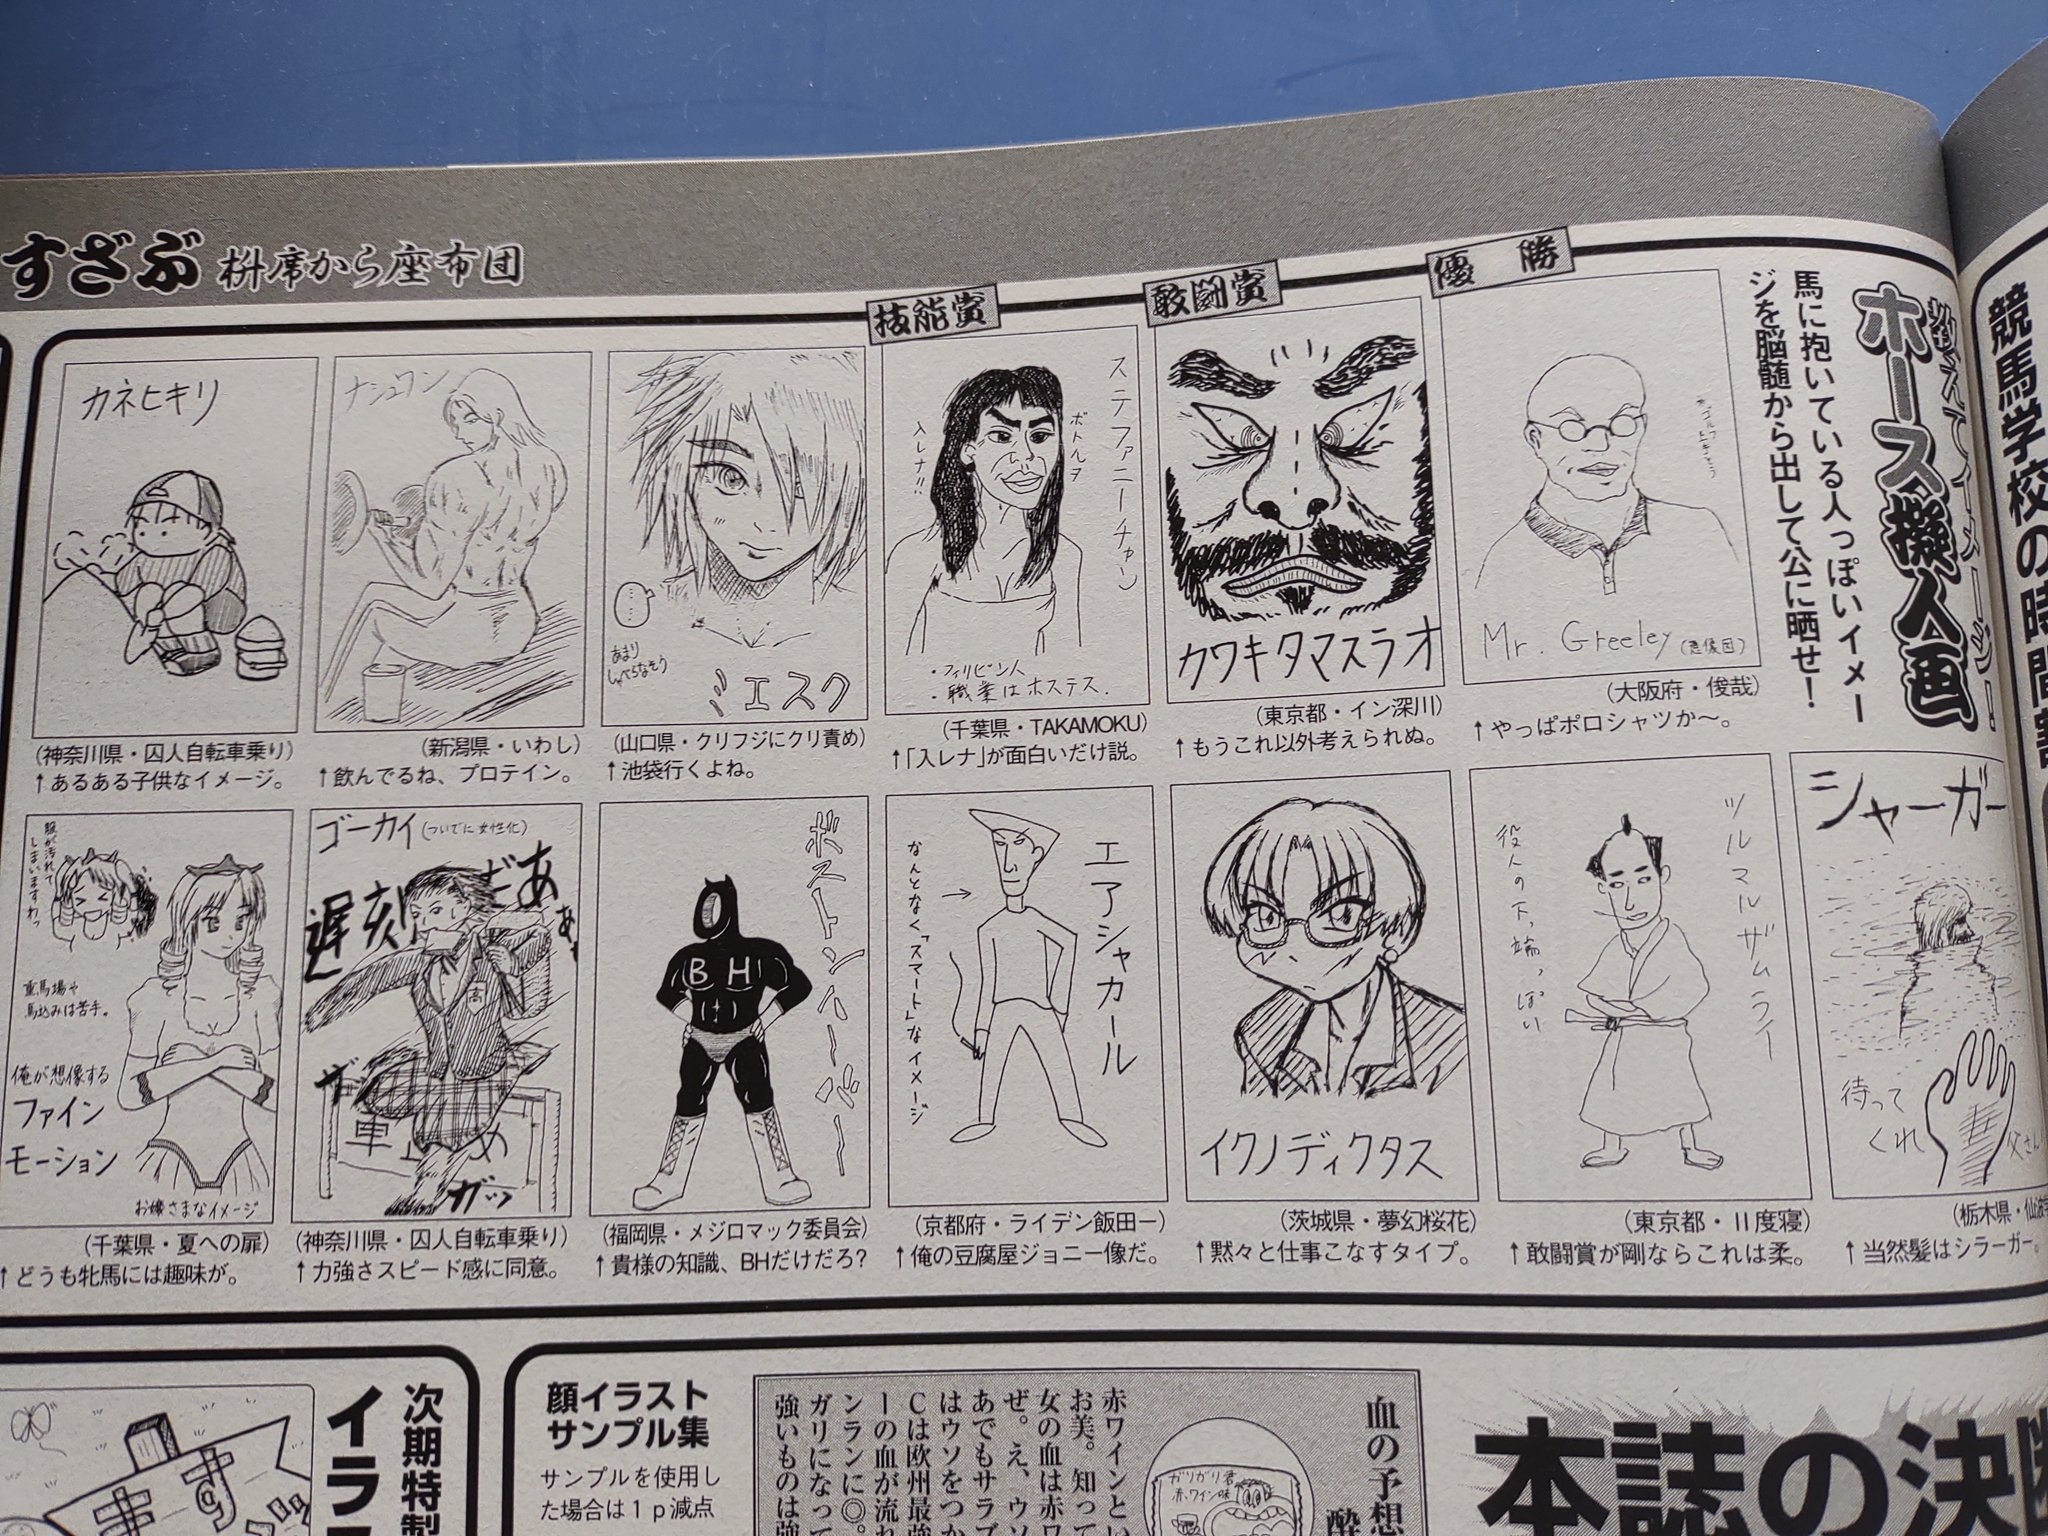 すざぶ 枡席から座布団
競馬学校の時間割
教えてイメージ!
ホース擬人画
馬に抱いている人っぽいイメー
ジを脳髄から出して公に晒せ!
優勝
Mr. Greeley (想像図)
(大阪府・俊哉)
↑やっぱポロシャツか〜。
敢闘賞
カワキタマスラオ
(東京都・イン深川)
↑もうこれ以外考えられぬ。
技能賞
ステファニーチャン
ボトルヲ
入レナ!!
・フィリピン人
・職業はホステス.
(千葉県・TAKAMOKU)
↑「入レナ」が面白いだけ説。
あまり
しゃべらなそう
ジェスク
(山口県・クリフジにクリ責め)
↑池袋行くよね。
ナシュワン
(新潟県・いわし)
↑飲んでるね、プロテイン。
カネヒキリ
(神奈川県・囚人自転車乗り)
↑あるある子供なイメージ。
シャーガー
待って
くれ
父さん
(栃木県・仙波
↑当然髪はシラーガー。
ツルマルザムライ
役人の下っ端っぽい
(東京都・Ⅱ度寝)
↑敢闘賞が剛ならこれは柔。
イクノディクタス
(茨城県・夢幻桜花)
↑黙々と仕事こなすタイプ。
エアシャカール
なんとなく「スマート」なイメージ
(京都府・ライデン飯田一)
↑俺の豆腐屋ジョニー像だ。
ボストンハーバー
BH
(福岡県・メジロマック委員会)
↑貴様の知識、BHだけだろ?
ゴーカイ(ついでに女性化)
遅刻だあぁ
高
ガッ
車止め
ガッ
(神奈川県・囚人自転車乗り)
↑力強さスピード感に同意。
服が汚れて
しまいますわっ
重馬場や
馬込みは苦手。
俺が想像する
ファイン
モーション
お嬢さまなイメージ
(千葉県・夏への扉)
↑どうも牝馬には趣味が。
本誌の決断
血の予想
酔
赤ワインとい
お美。知って
女の血は赤ワ
ぜ。え、ウソ
あでもサラブ
はウソをつか
Cは欧州最強
ーの血が流れ
ンランに◎。
ガリになって
強いものは強
ガリガリ君
赤ワイン味
顔イラスト
サンプル集
サンプルを使用し
た場合は1p減点
次期特製
イラス
ますザブ